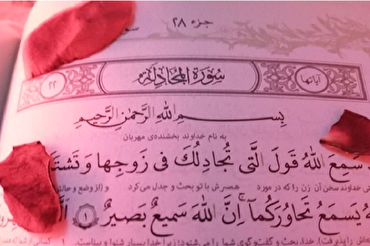 جزء ٢٨
سو
آیاتها سُورَةُ المُجَادلَة ٢٢
بِسْمِ اللهِ الرَّحْمٰنِ الرَّحِيمِ
به نام خداوند بخشنده‌ی مهربان
سَمِعَ اللهُ قَولَ الَّتي تُجادِلُكَ في زَوجِها وَتَشتَ
خداوند سخن آن زن را که در مورد همسرش با تو بحث و جدل می‌کرد
يَسمَعُ تَحاوُرَكُما إِنَّ اللهَ سَميعٌ بَصيرٌ ١